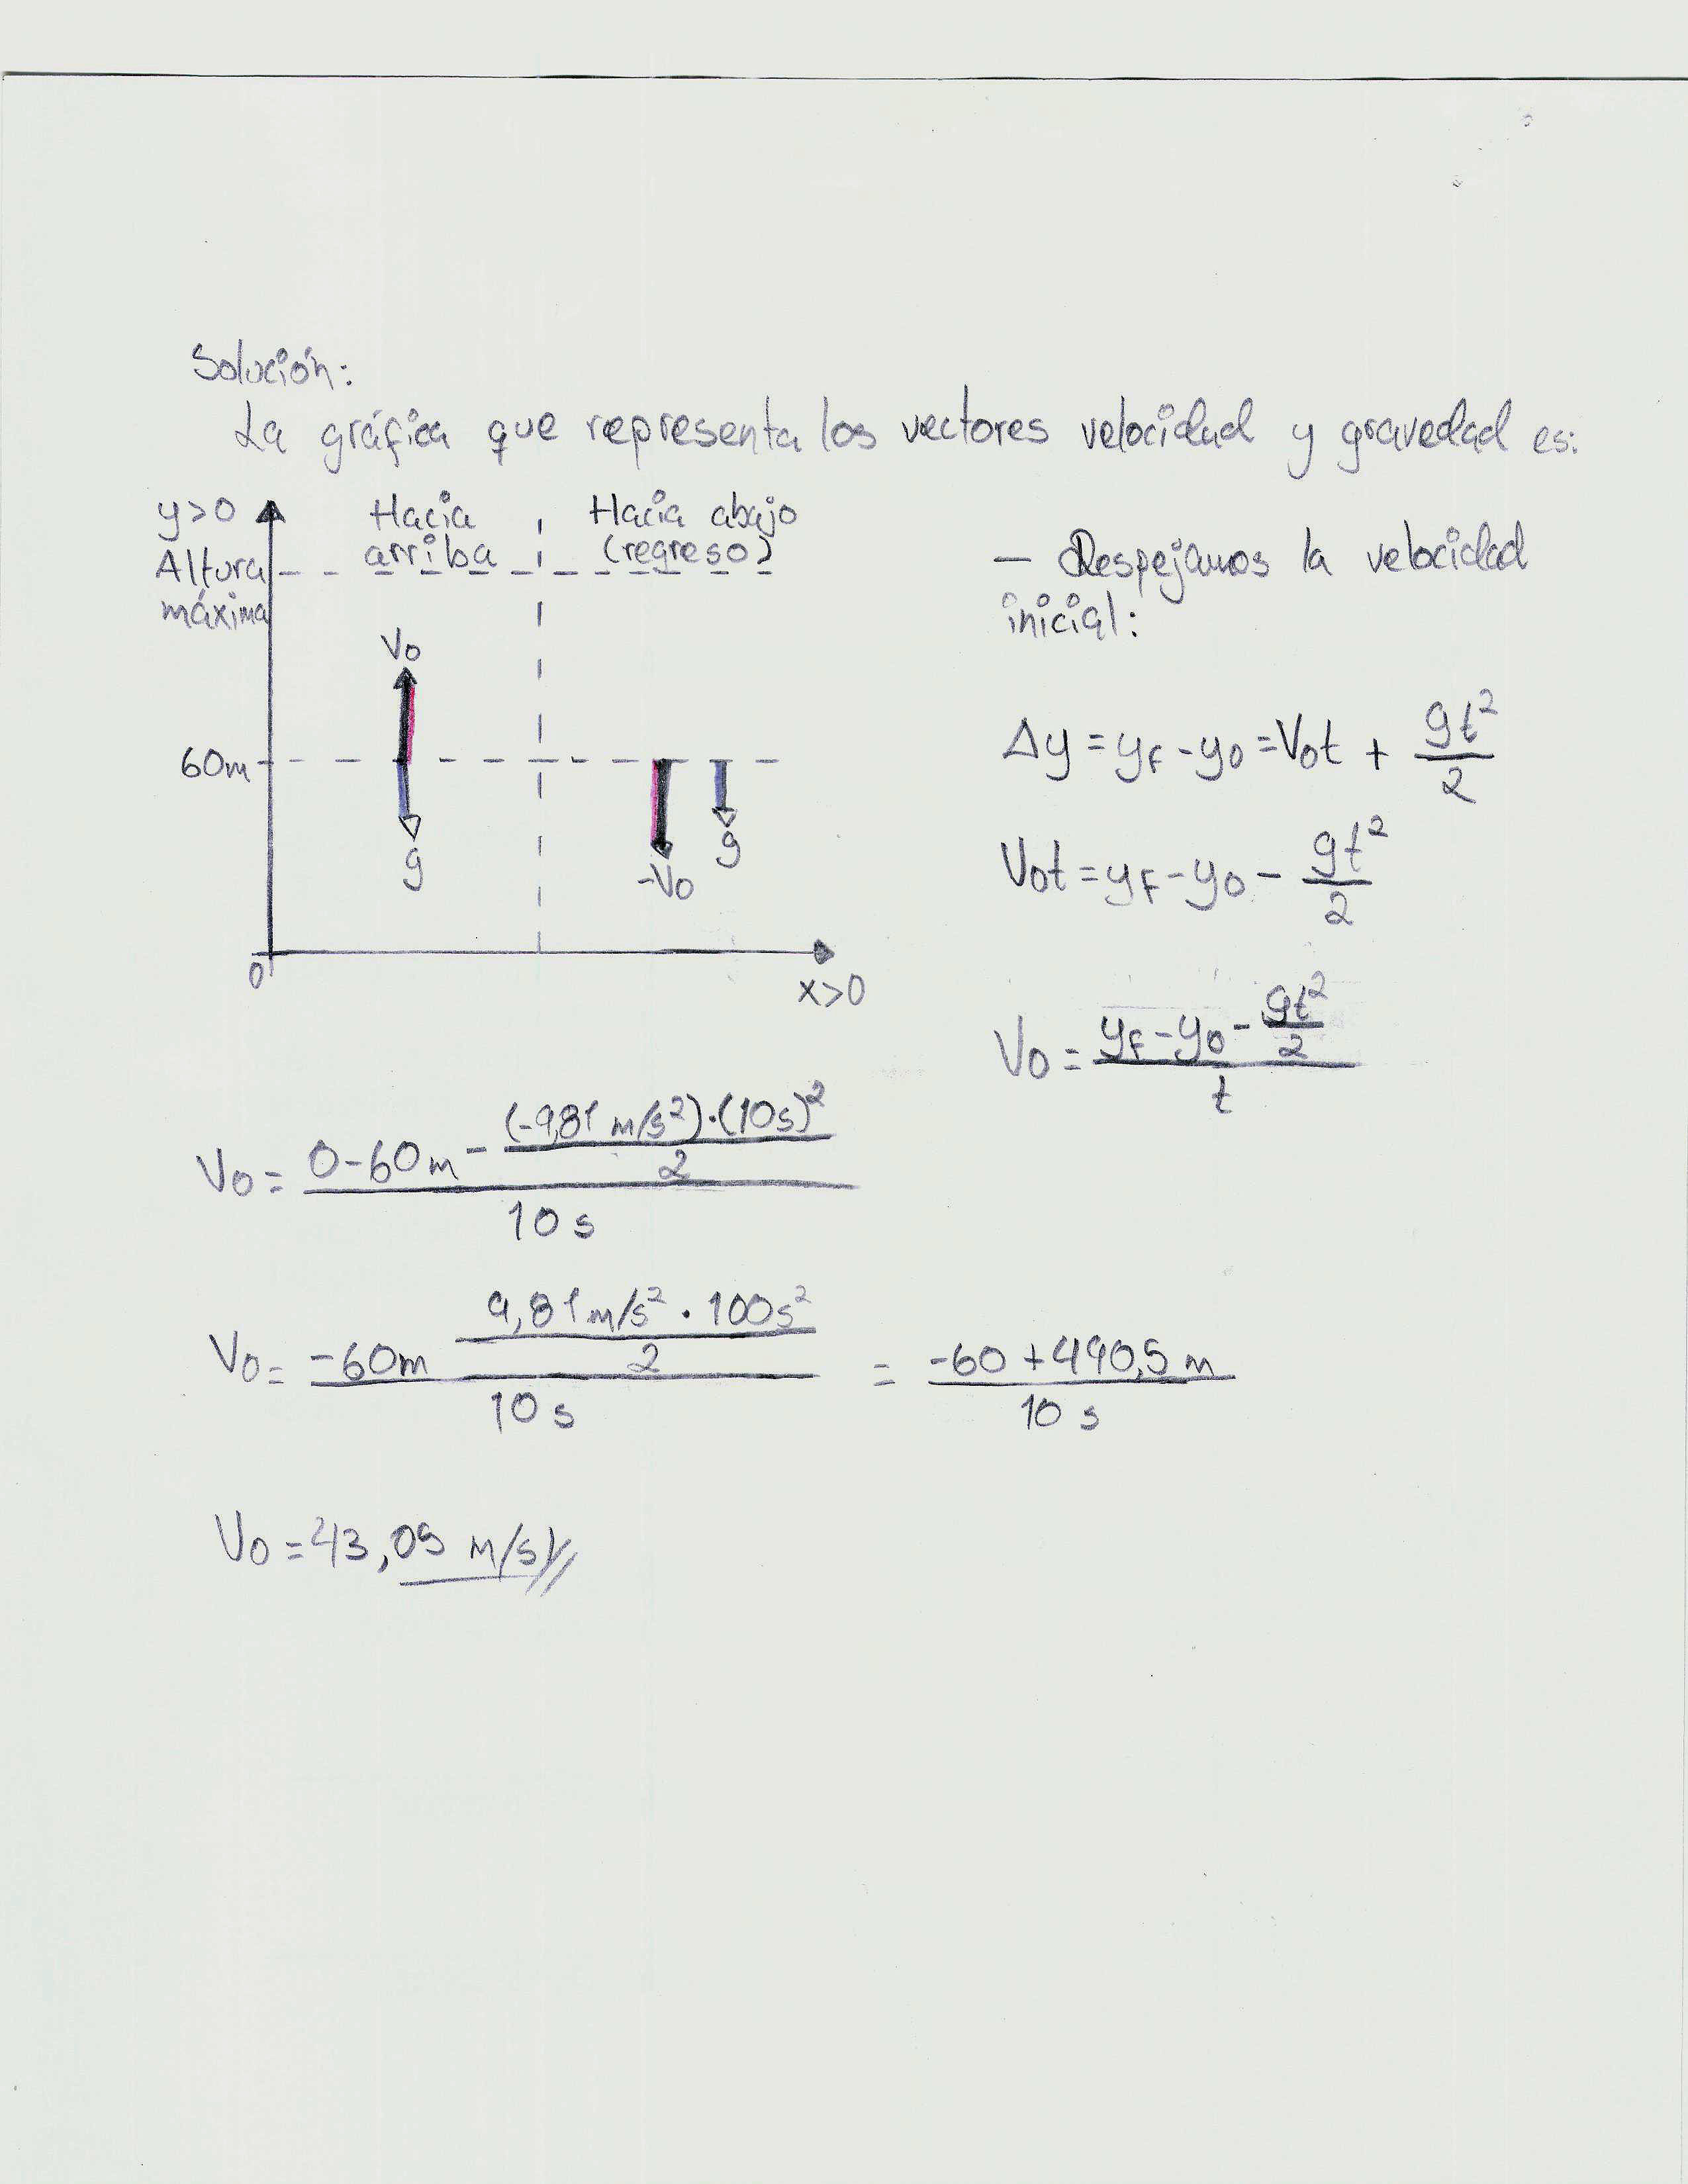 Solución:
La gráfica que representa los vectores velocidad y gravedad es:
y>0
Hacia
arriba
Hacia abajo
(regreso)
Altura
máxima
V0
60m
g
-V0
g
0
x>0
— Despejamos la velocidad
inicial:
Δy = yF - y0 = V0t + gt²/2
V0t = yF - y0 - gt²/2
V0 = (yF - y0 - gt²/2)/t
V0 = (0-60m - (-9,81 m/s²)·(10s)²/2)/10 s
V0 = (-60m 9,81 m/s² · 100s²/2)/10 s = (-60 + 490,5 m)/10 s
V0 = 43,05 m/s//